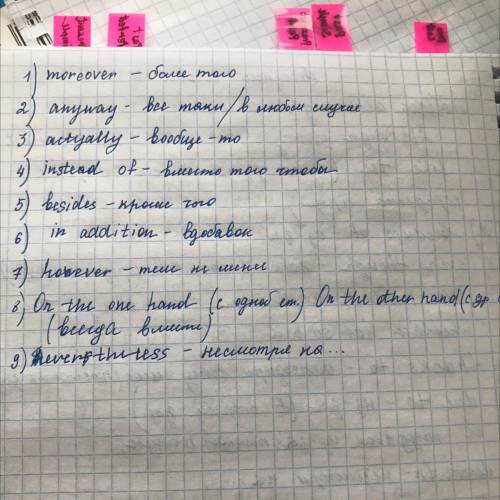 1) moreover – более того
2) anyway – все таки / в любом случае
3) actyally – вообще-то
4) instead of – вместо того чтобы
5) besides – кроме того
6) in addition – вдобавок
7) however – тем не мение
8) On the one hand (с одной ст.) On the other hand (с др.
(всегда вместе)
9) nevertheless – несмотря на...